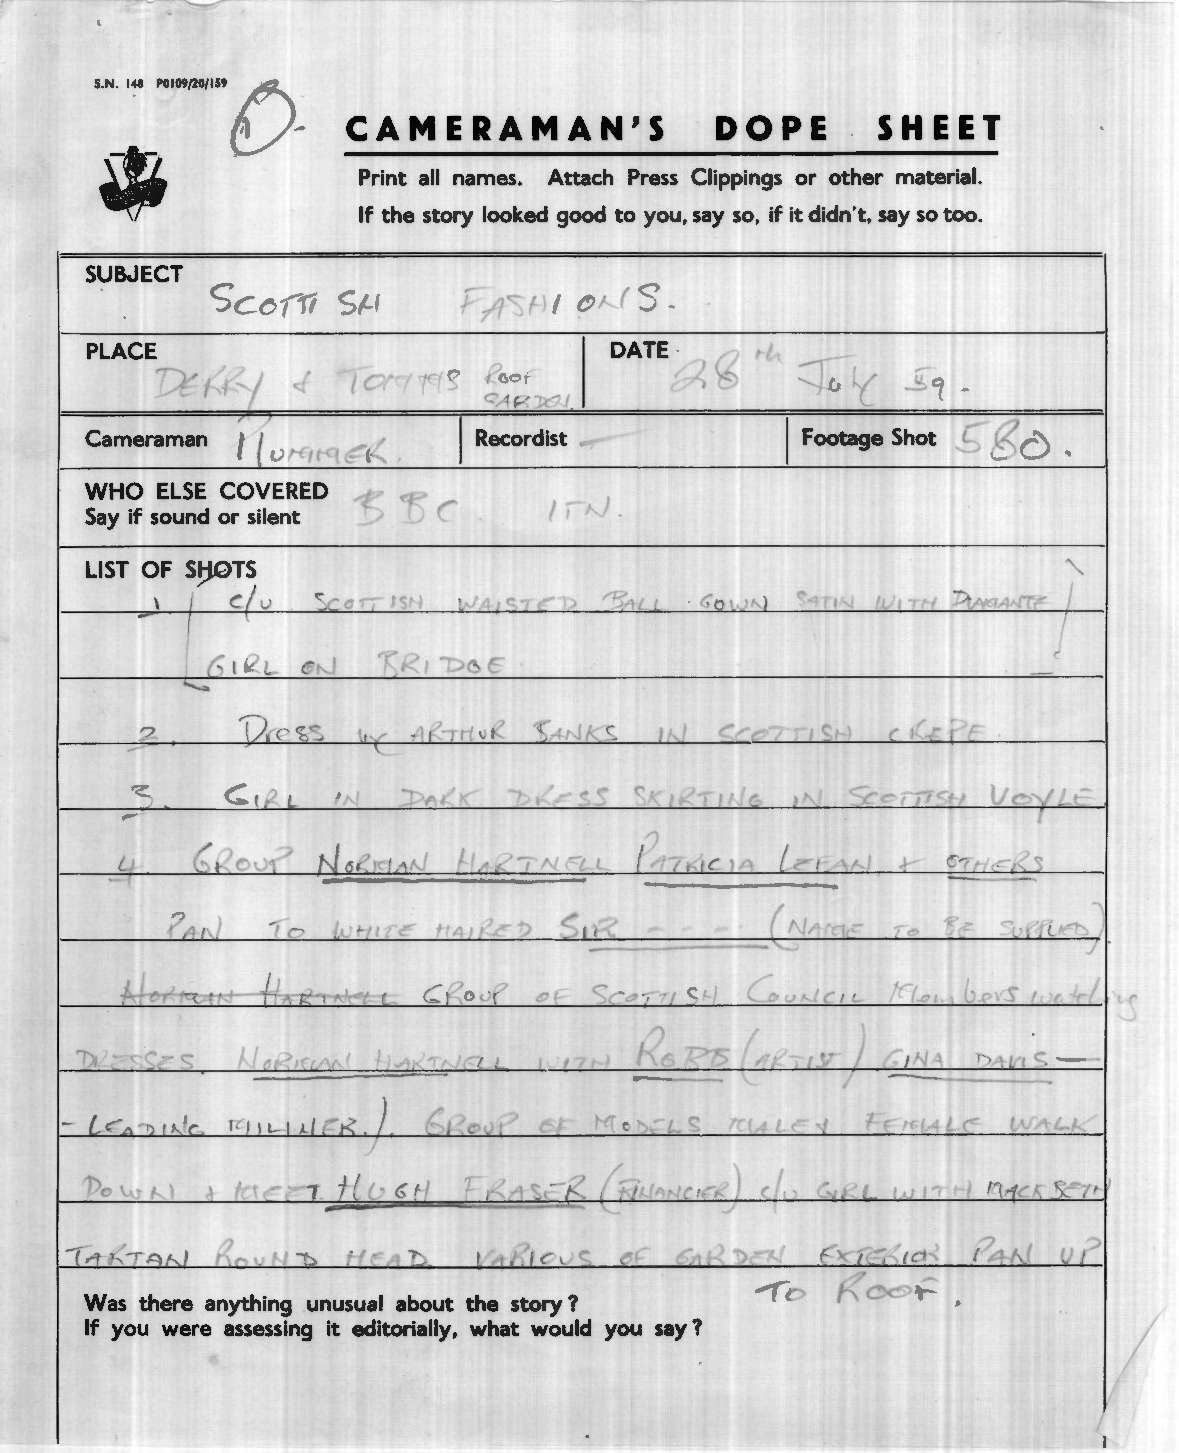 S.N. 148 P0109/20/159
1
CAMERAMAN'S DOPE SHEET
Print all names. Attach Press Clippings or other material.
If the story looked good to you, say so, if it didn't, say so too.
SUBJECT
SCOTTISH FASHIONS.
PLACE
DERRY & TOMMS ROOF GARDEN
DATE
28th July 59.
Cameraman Plummer.
Recordist —
Footage Shot 580.
WHO ELSE COVERED
Say if sound or silent
BBC. ITN.
LIST OF SHOTS
1 C/U SCOTTISH WAISTED BALL GOWN SATIN WITH DIAMANTE
GIRL ON BRIDGE
2. Dress by ARTHUR BANKS IN SCOTTISH CREPE.
3. GIRL IN DARK DRESS SKIRTING IN SCOTTISH VOYLE
4. GROUP NORMAN HARTNELL PATRICIA & OTHERS
PAN TO WHITE HAIRED SIR - - - - (NAME TO BE SUPPLIED)
NORMAN HARTNELL GROUP OF SCOTTISH COUNCIL Members watching
DRESSES. NORMAN HARTNELL WITH ROBB (ARTIST) GINA DAVIS —
- LEADING MILLINER.). GROUP OF MODELS MALE & FEMALE WALK
DOWN & MEET HUGH FRASER (FINANCIER) C/U GIRL WITH MACKSETH
TARTAN ROUND HEAD VARIOUS OF GARDEN EXTERIOR PAN UP
TO ROOF.
Was there anything unusual about the story?
If you were assessing it editorially, what would you say?